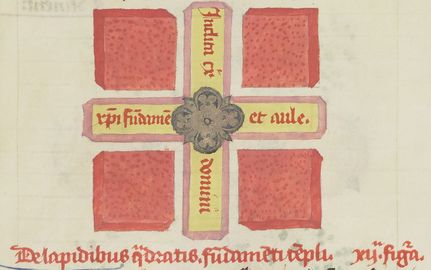 Inclita
xp̄i fūdamē
et aule.
domini
De lapidibus q̄dratis. fūdamēti tēpli. xij. figᷓa.